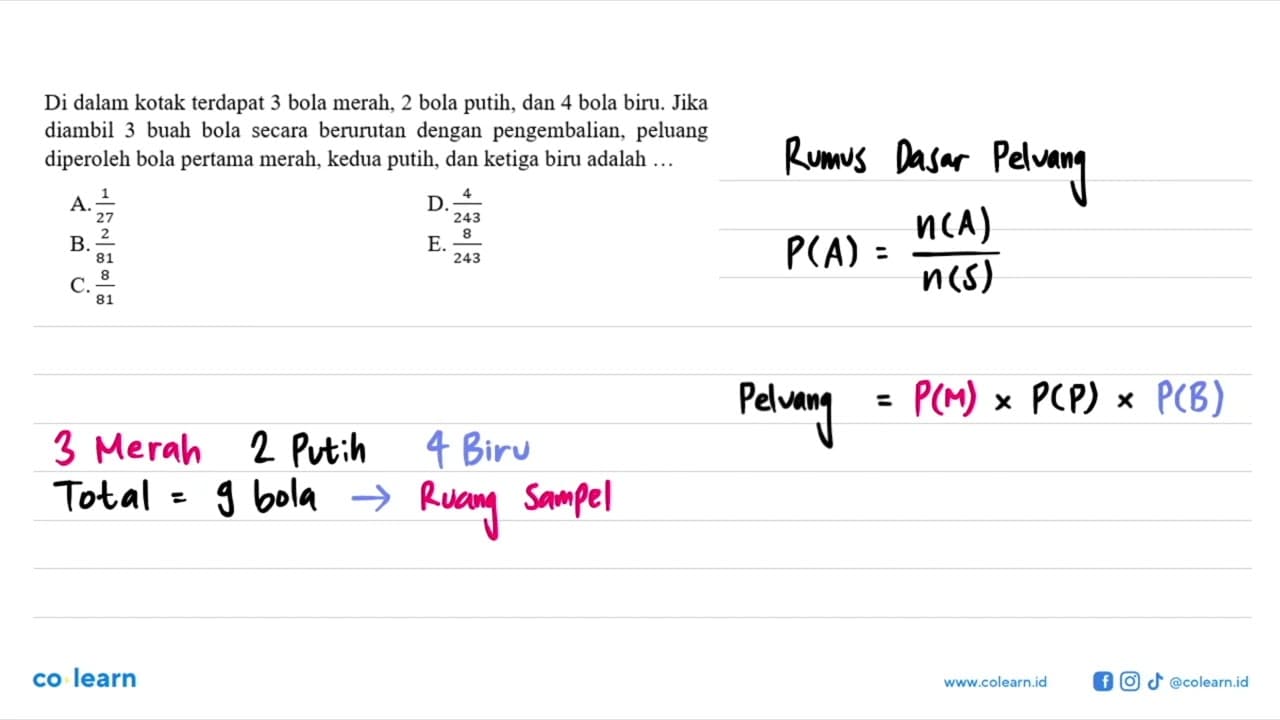 Di dalam kotak terdapat 3 bola merah, 2 bola putih, dan 4 bola biru. Jika
diambil 3 buah bola secara berurutan dengan pengembalian, peluang
diperoleh bola pertama merah, kedua putih, dan ketiga biru adalah …
A. 1/27
B. 2/81
C. 8/81
D. 4/243
E. 8/243
Rumus Dasar Peluang
P(A) = n(A)/n(S)
Peluang = P(M) × P(P) × P(B)
3 Merah 2 Putih 4 Biru
Total = 9 bola → Ruang Sampel
co learn
www.colearn.id
@colearn.id